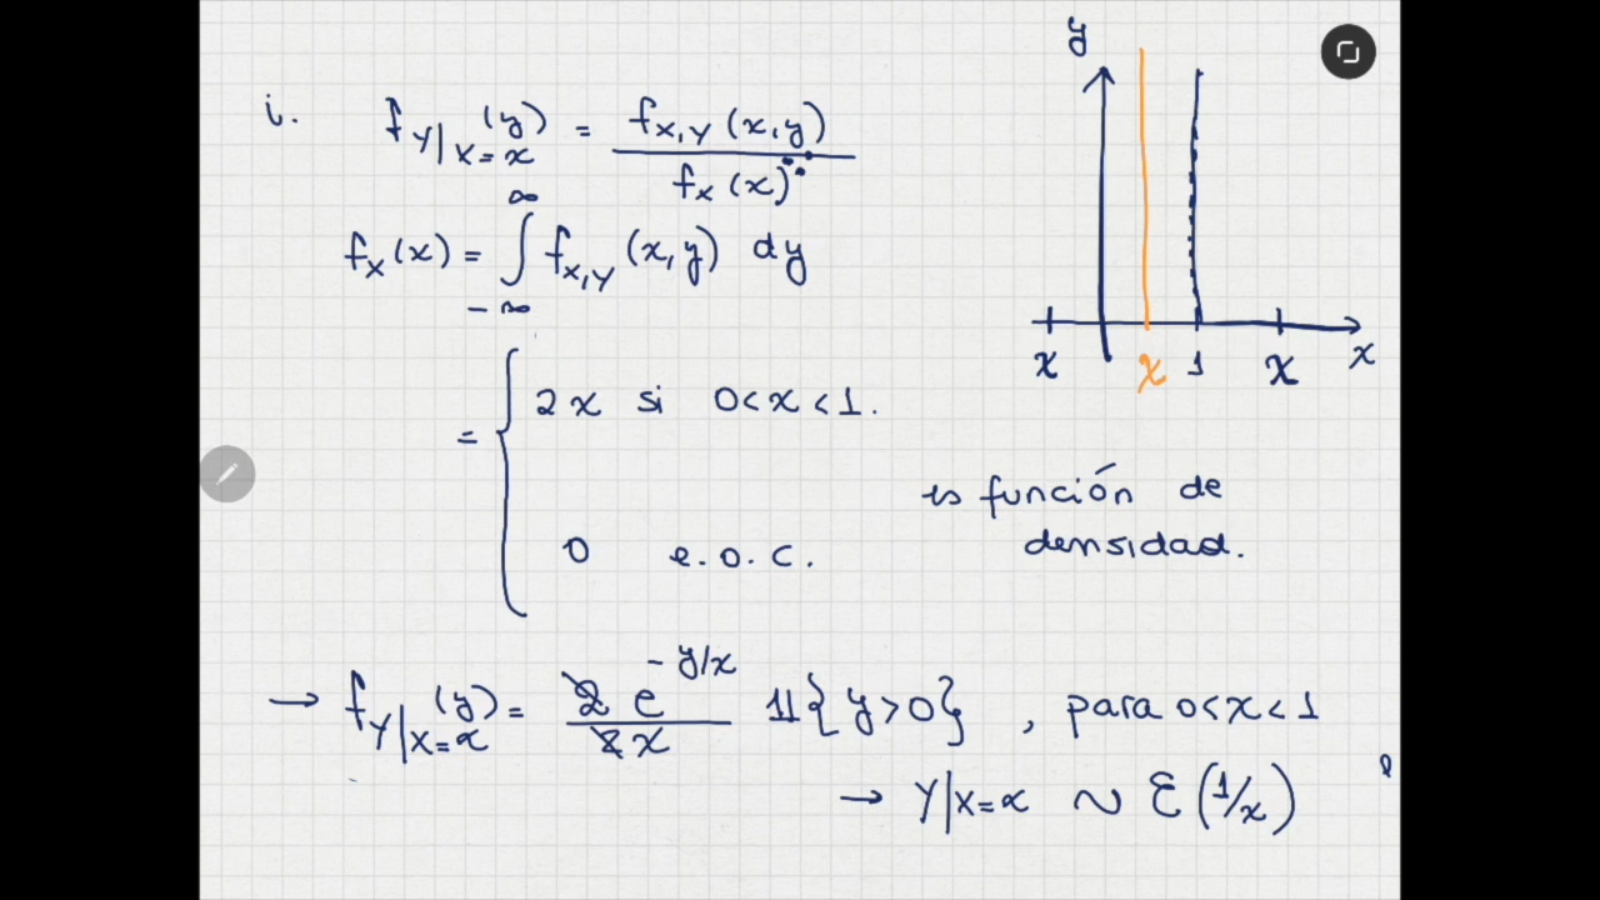 i. f_{Y|X=x}(y) = f_{X,Y}(x,y) / f_X(x)
f_X(x) = ∫_{-∞}^{∞} f_{X,Y}(x,y) dy
= { 2x si 0<x<1.
0 e.o.c.
y
x x 1 x x
es función de
densidad.
→ f_{Y|X=x}(y) = 2 e^{-y/x} / 2x 𝟙{y>0} , para 0<x<1
→ Y|X=x ~ ε(1/x)